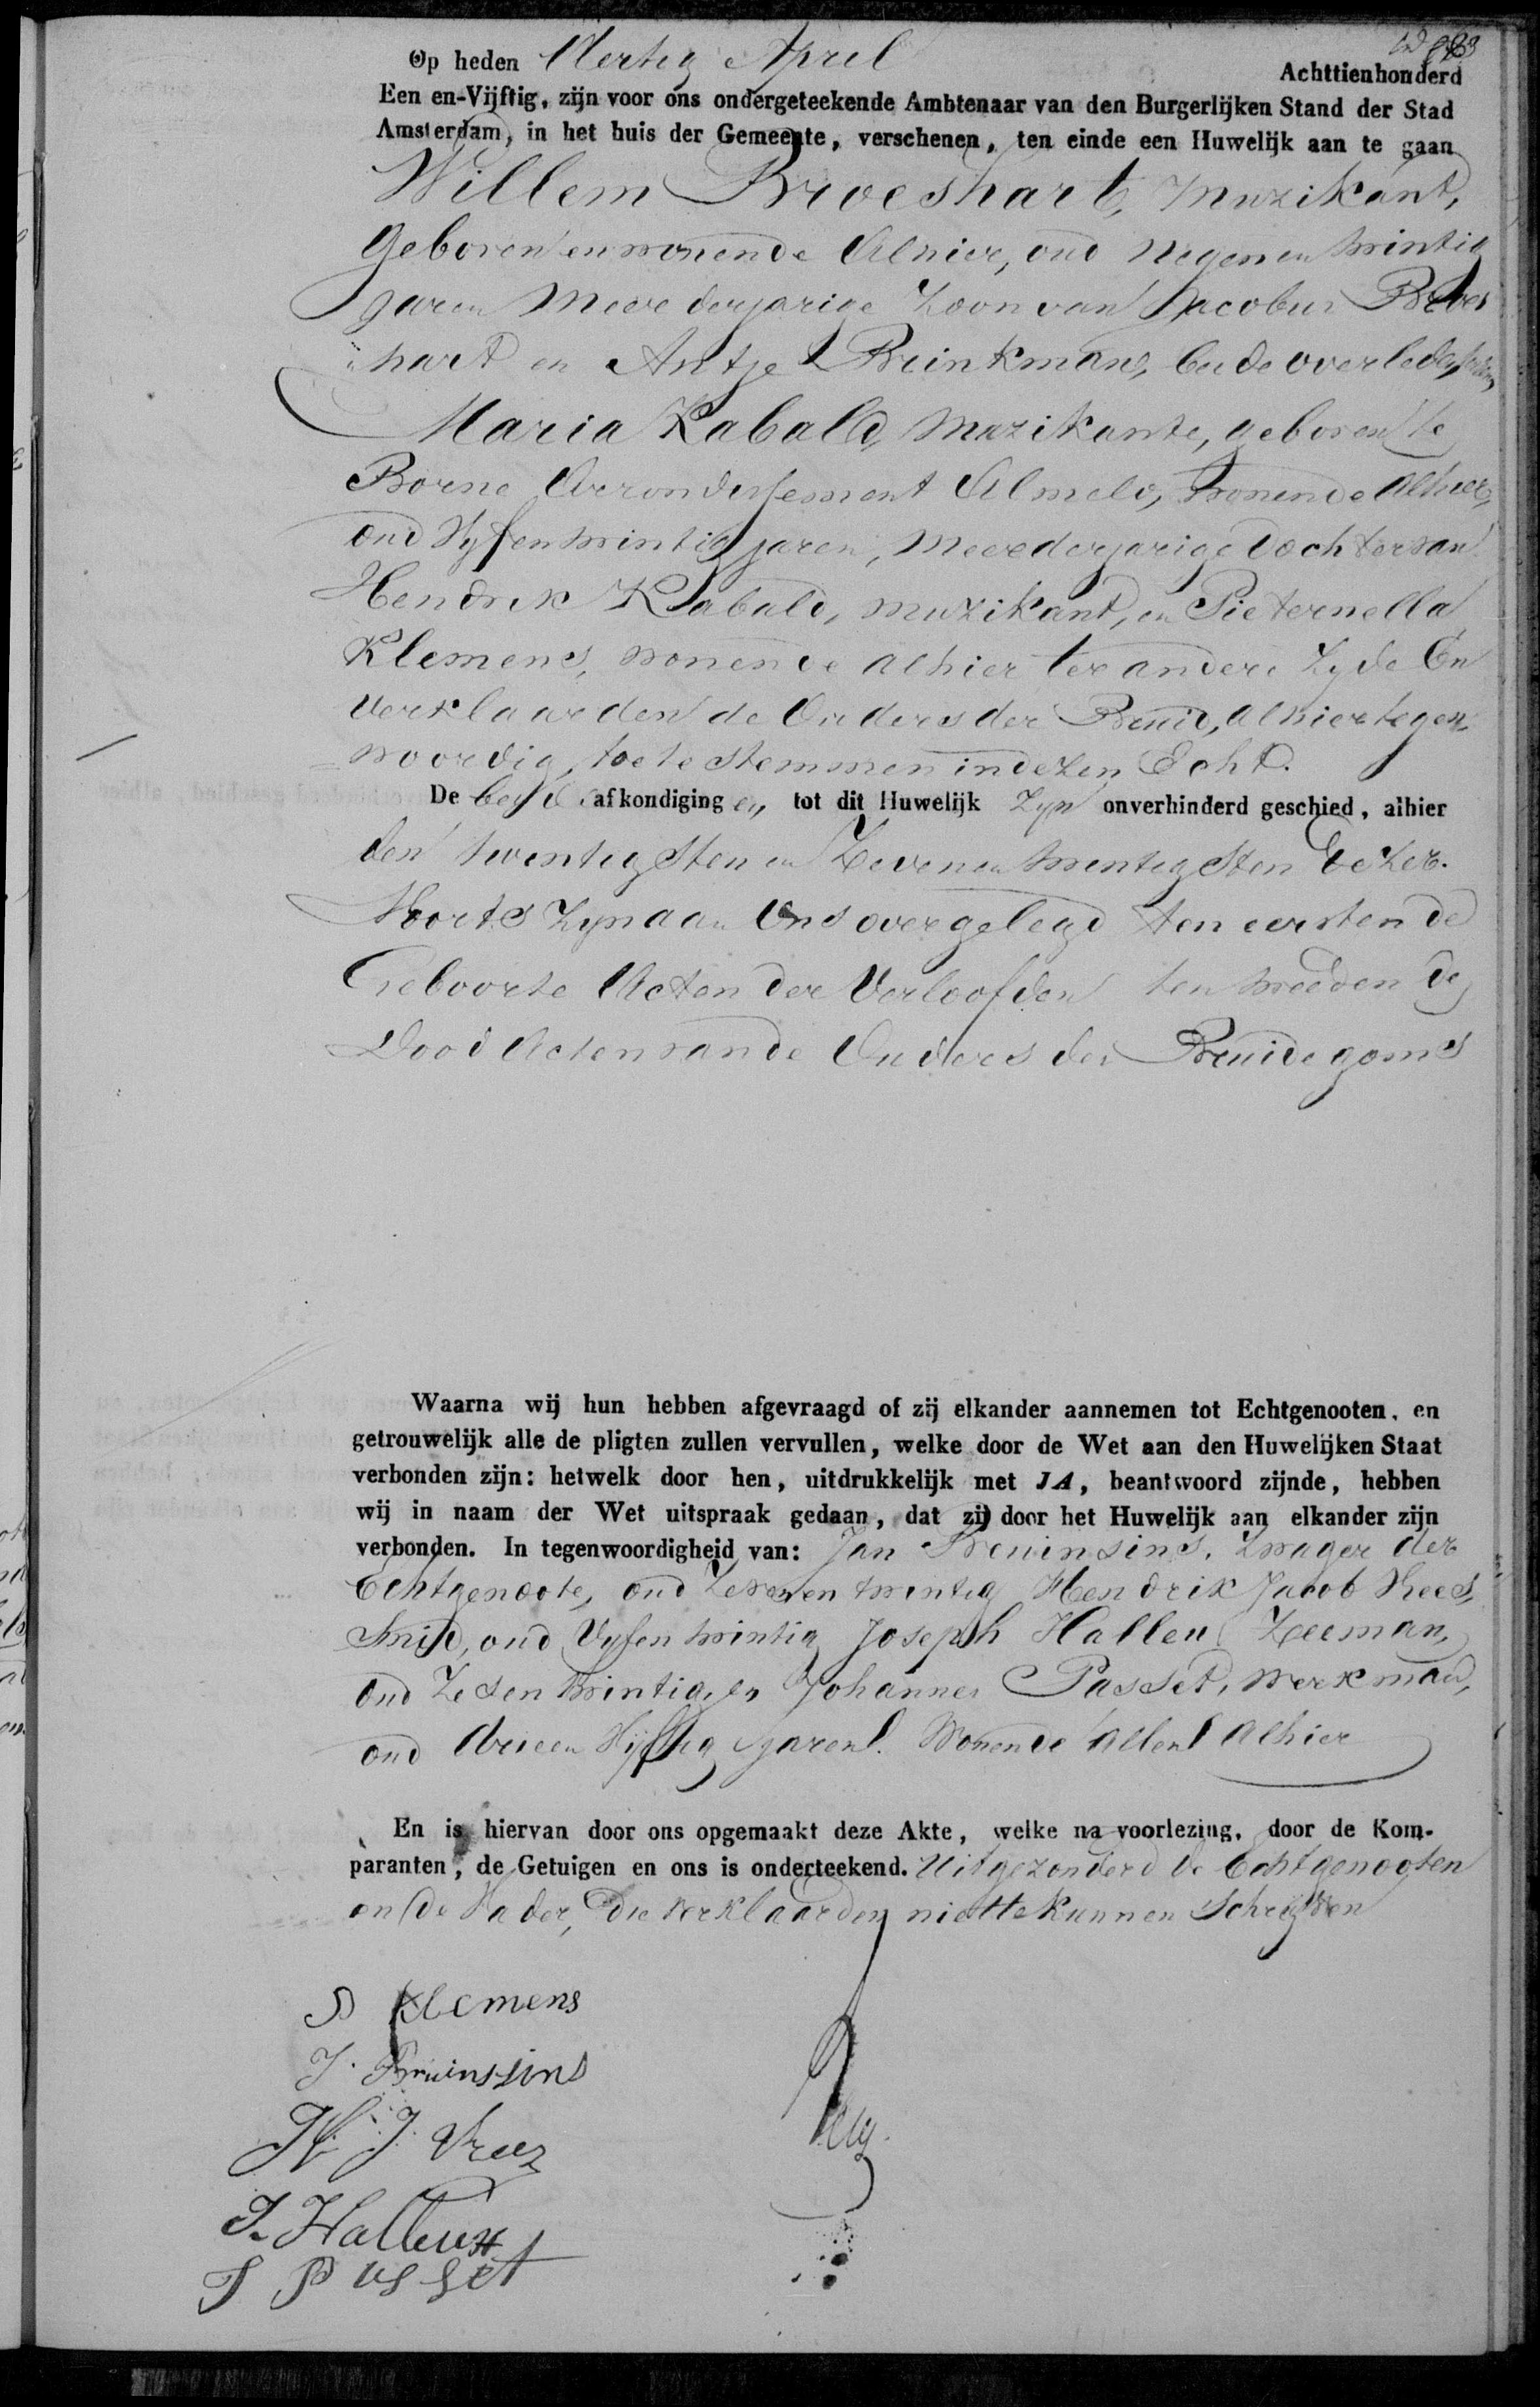 Op heden Dertig April Achttienhonderd
Een en-Vijftig, zijn voor ons ondergeteekende Ambtenaar van den Burgerlijken Stand der Stad
Amsterdam, in het huis der Gemeente, verschenen, ten einde een Huwelijk aan te gaan
Willem Broeshart, Muzikant,
Geboren en wonende Alhier, oud Negenentwintig
jaren Meerderjarige Zoon van Jacobus Broes
hart en Antje Brinkman, beide overleden,
Maria Kabald, Muzikante, geboren te
Borne Arrondissement Almelo, Wonende Alhier,
oud Vyfentwintig jaren, Meerderjarige Dochter van
Hendrik Kabald, muzikant, en Pieternella
Klemens, wonende alhier ter andere Zyde En
verklaarden de Ouders der Bruid, alhier tegen,
woordig, toe te stemmen in dezen Echt.
De beide afkondigingen tot dit Huwelijk Zyn onverhinderd geschied, alhier
den twintigsten en Zevenentwintigsten dezer.
Voorts Zyn aan Ons overgelegd ten eersten de
Geboorte Acten der Verloofden ten tweeden de
Dood Acten van de Ouders des Bruidegoms
Waarna wij hun hebben afgevraagd of zij elkander aannemen tot Echtgenooten, en
getrouwelijk alle de pligten zullen vervullen, welke door de Wet aan den Huwelijken Staat
verbonden zijn: hetwelk door hen, uitdrukkelijk met JA, beantwoord zijnde, hebben
wij in naam der Wet uitspraak gedaan, dat zij door het Huwelijk aan elkander zijn
verbonden. In tegenwoordigheid van: Jan Bruinsins, Zwager der
Echtgenoote, oud Zevenentwintig Hendrik Jacob Vrees,
Smid, oud Vyfentwintig Joseph Halleux Zeeman,
oud Zesentwintig, en Johannes Passet, werkman,
oud drieen Vijftig jaren. Wonende Allen Alhier
En is hiervan door ons opgemaakt deze Akte, welke na voorlezing, door de Kom-
paranten, de Getuigen en ons is onderteekend. Uitgezonderd de Echtgenooten
en de Vader, die verklaarden niet te kunnen Schrijven
P Klemens
J. Bruinssins
H. J. Vreez
J. Halleux
J Passet